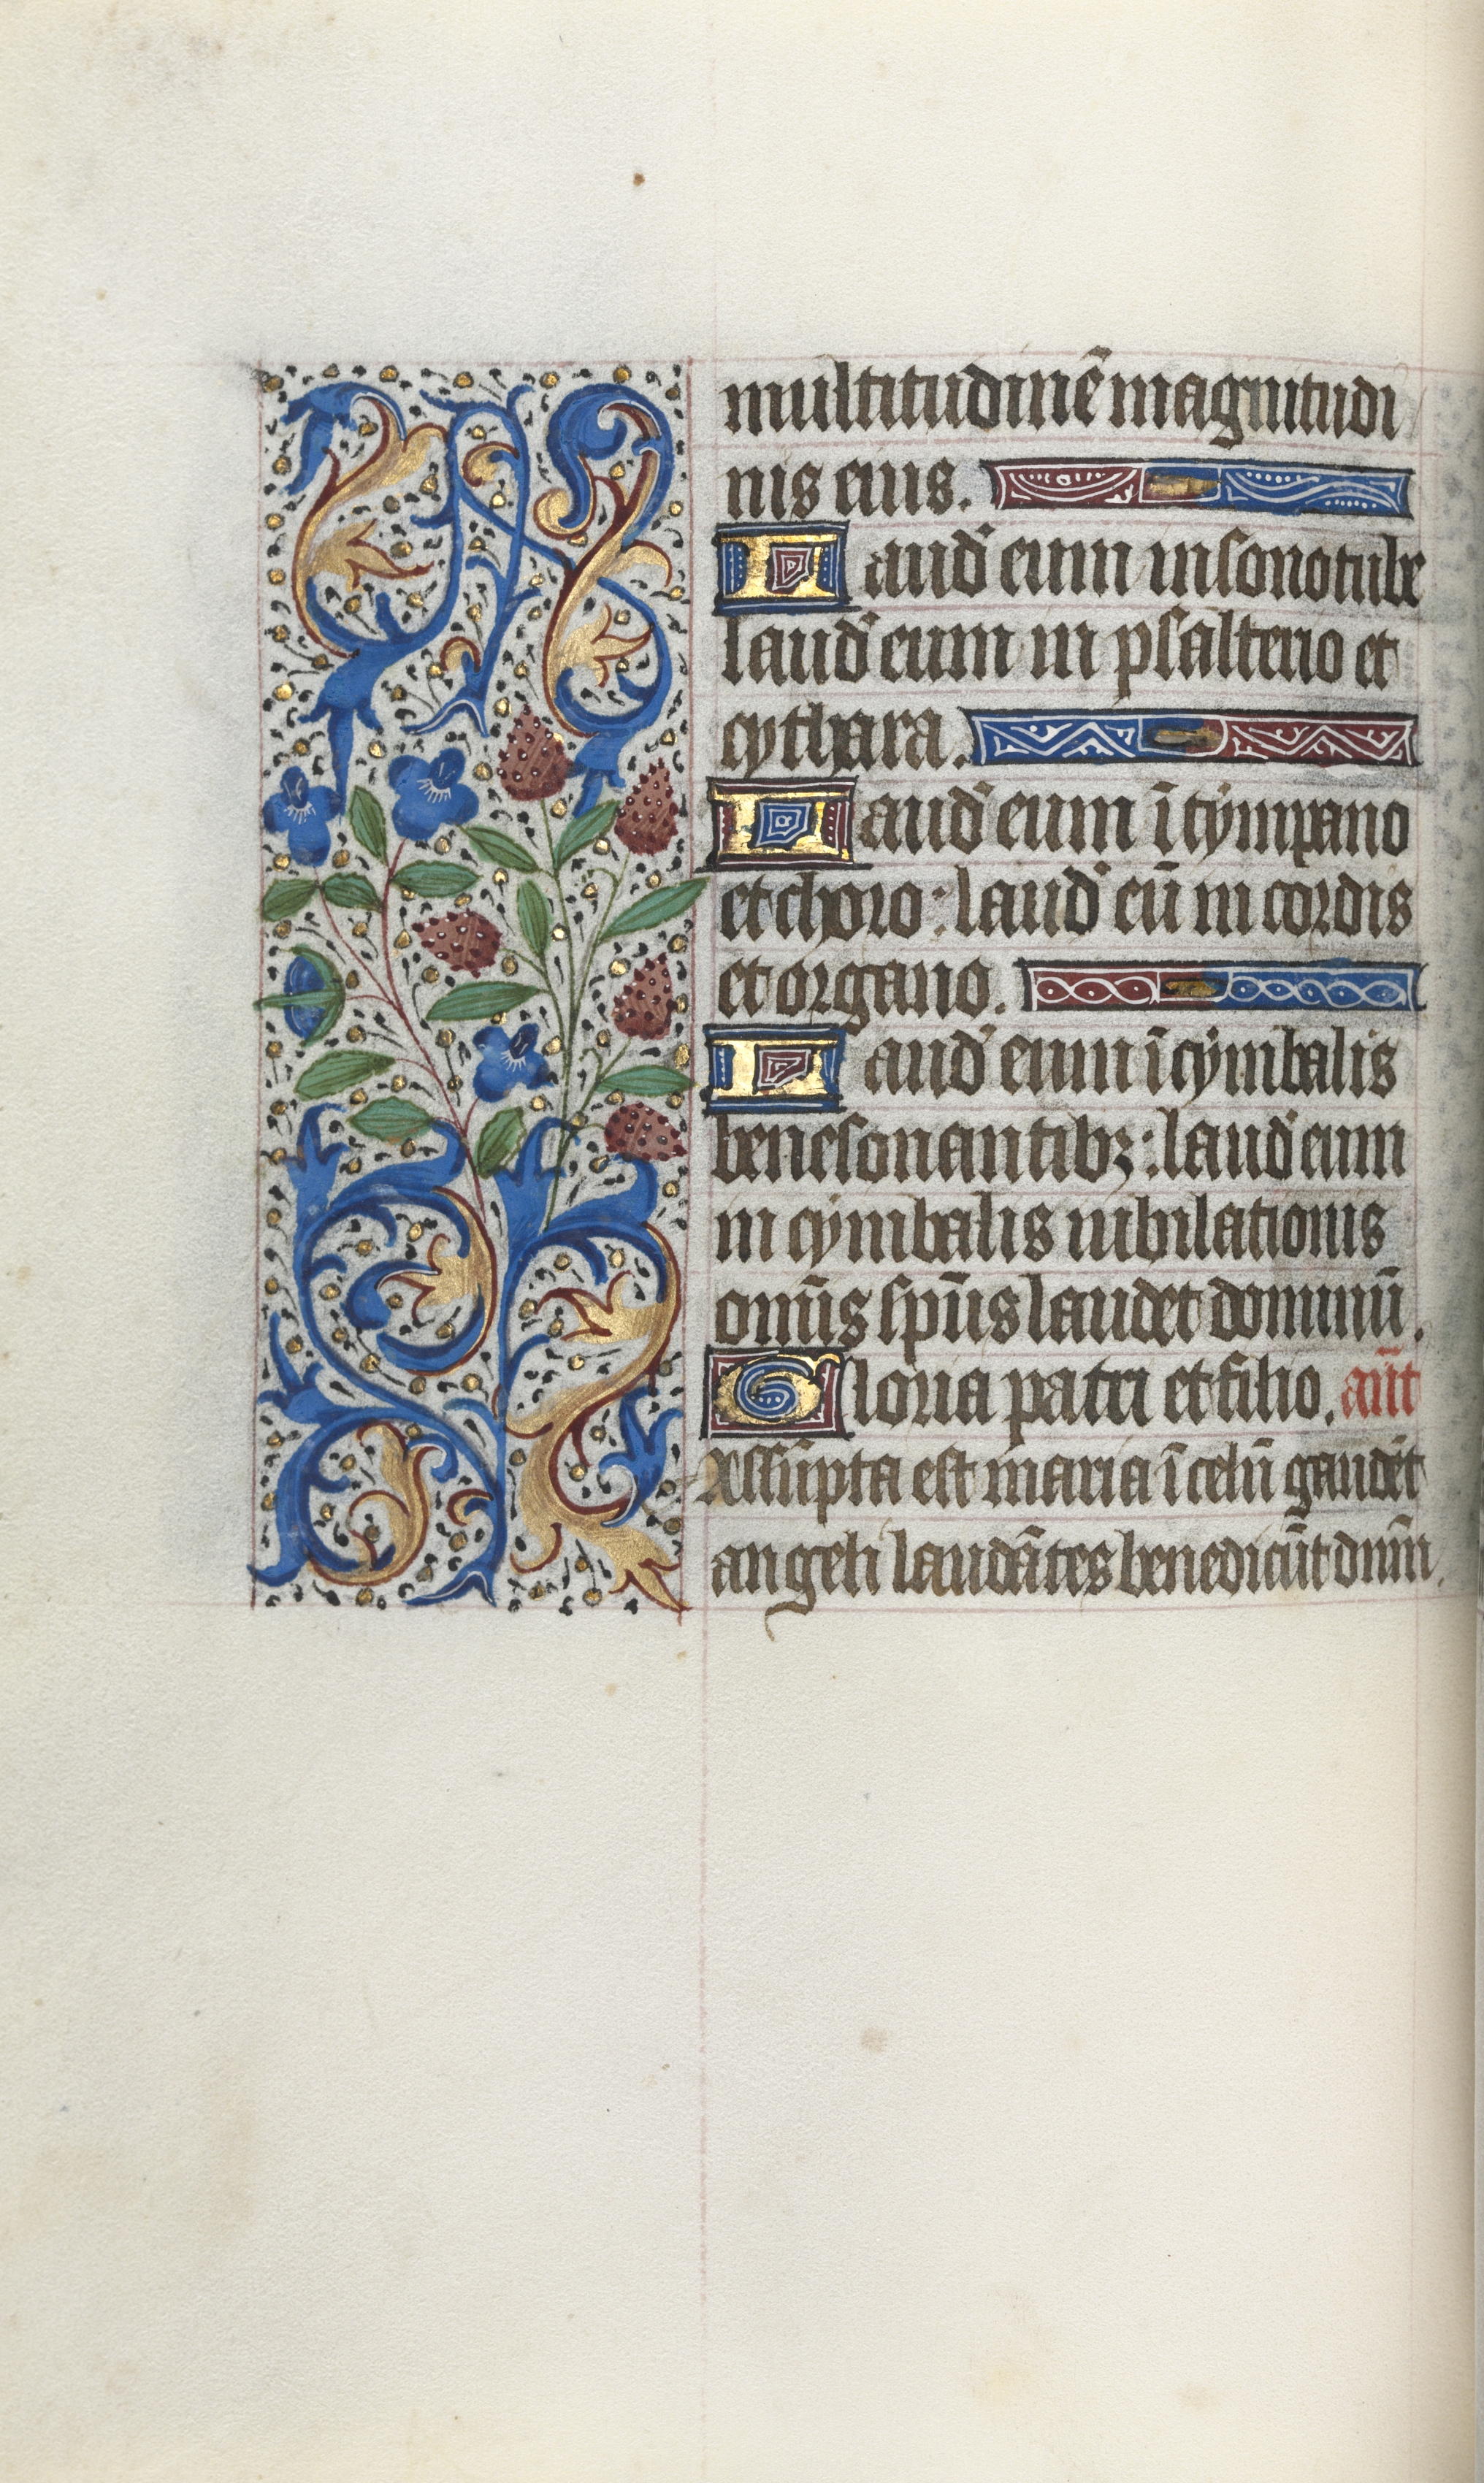 multitudinē magnitudi
nis eius.
Laud' eum in sono tube
laud' eum in psalterio et
cythara.
Laud' eum ī tympano
et choro: laud' eū in cordis
et organo.
Laud' eum ī cymbalis
benesonantibꝫ: laud' eum
in cymbalis iubilationis
om̄is sp̄us laudet dominū.
Gloria patri et filio. an̄t
Assūpta est maria ī celū gaudēt
angeli laudātes benedicūt dn̄m.